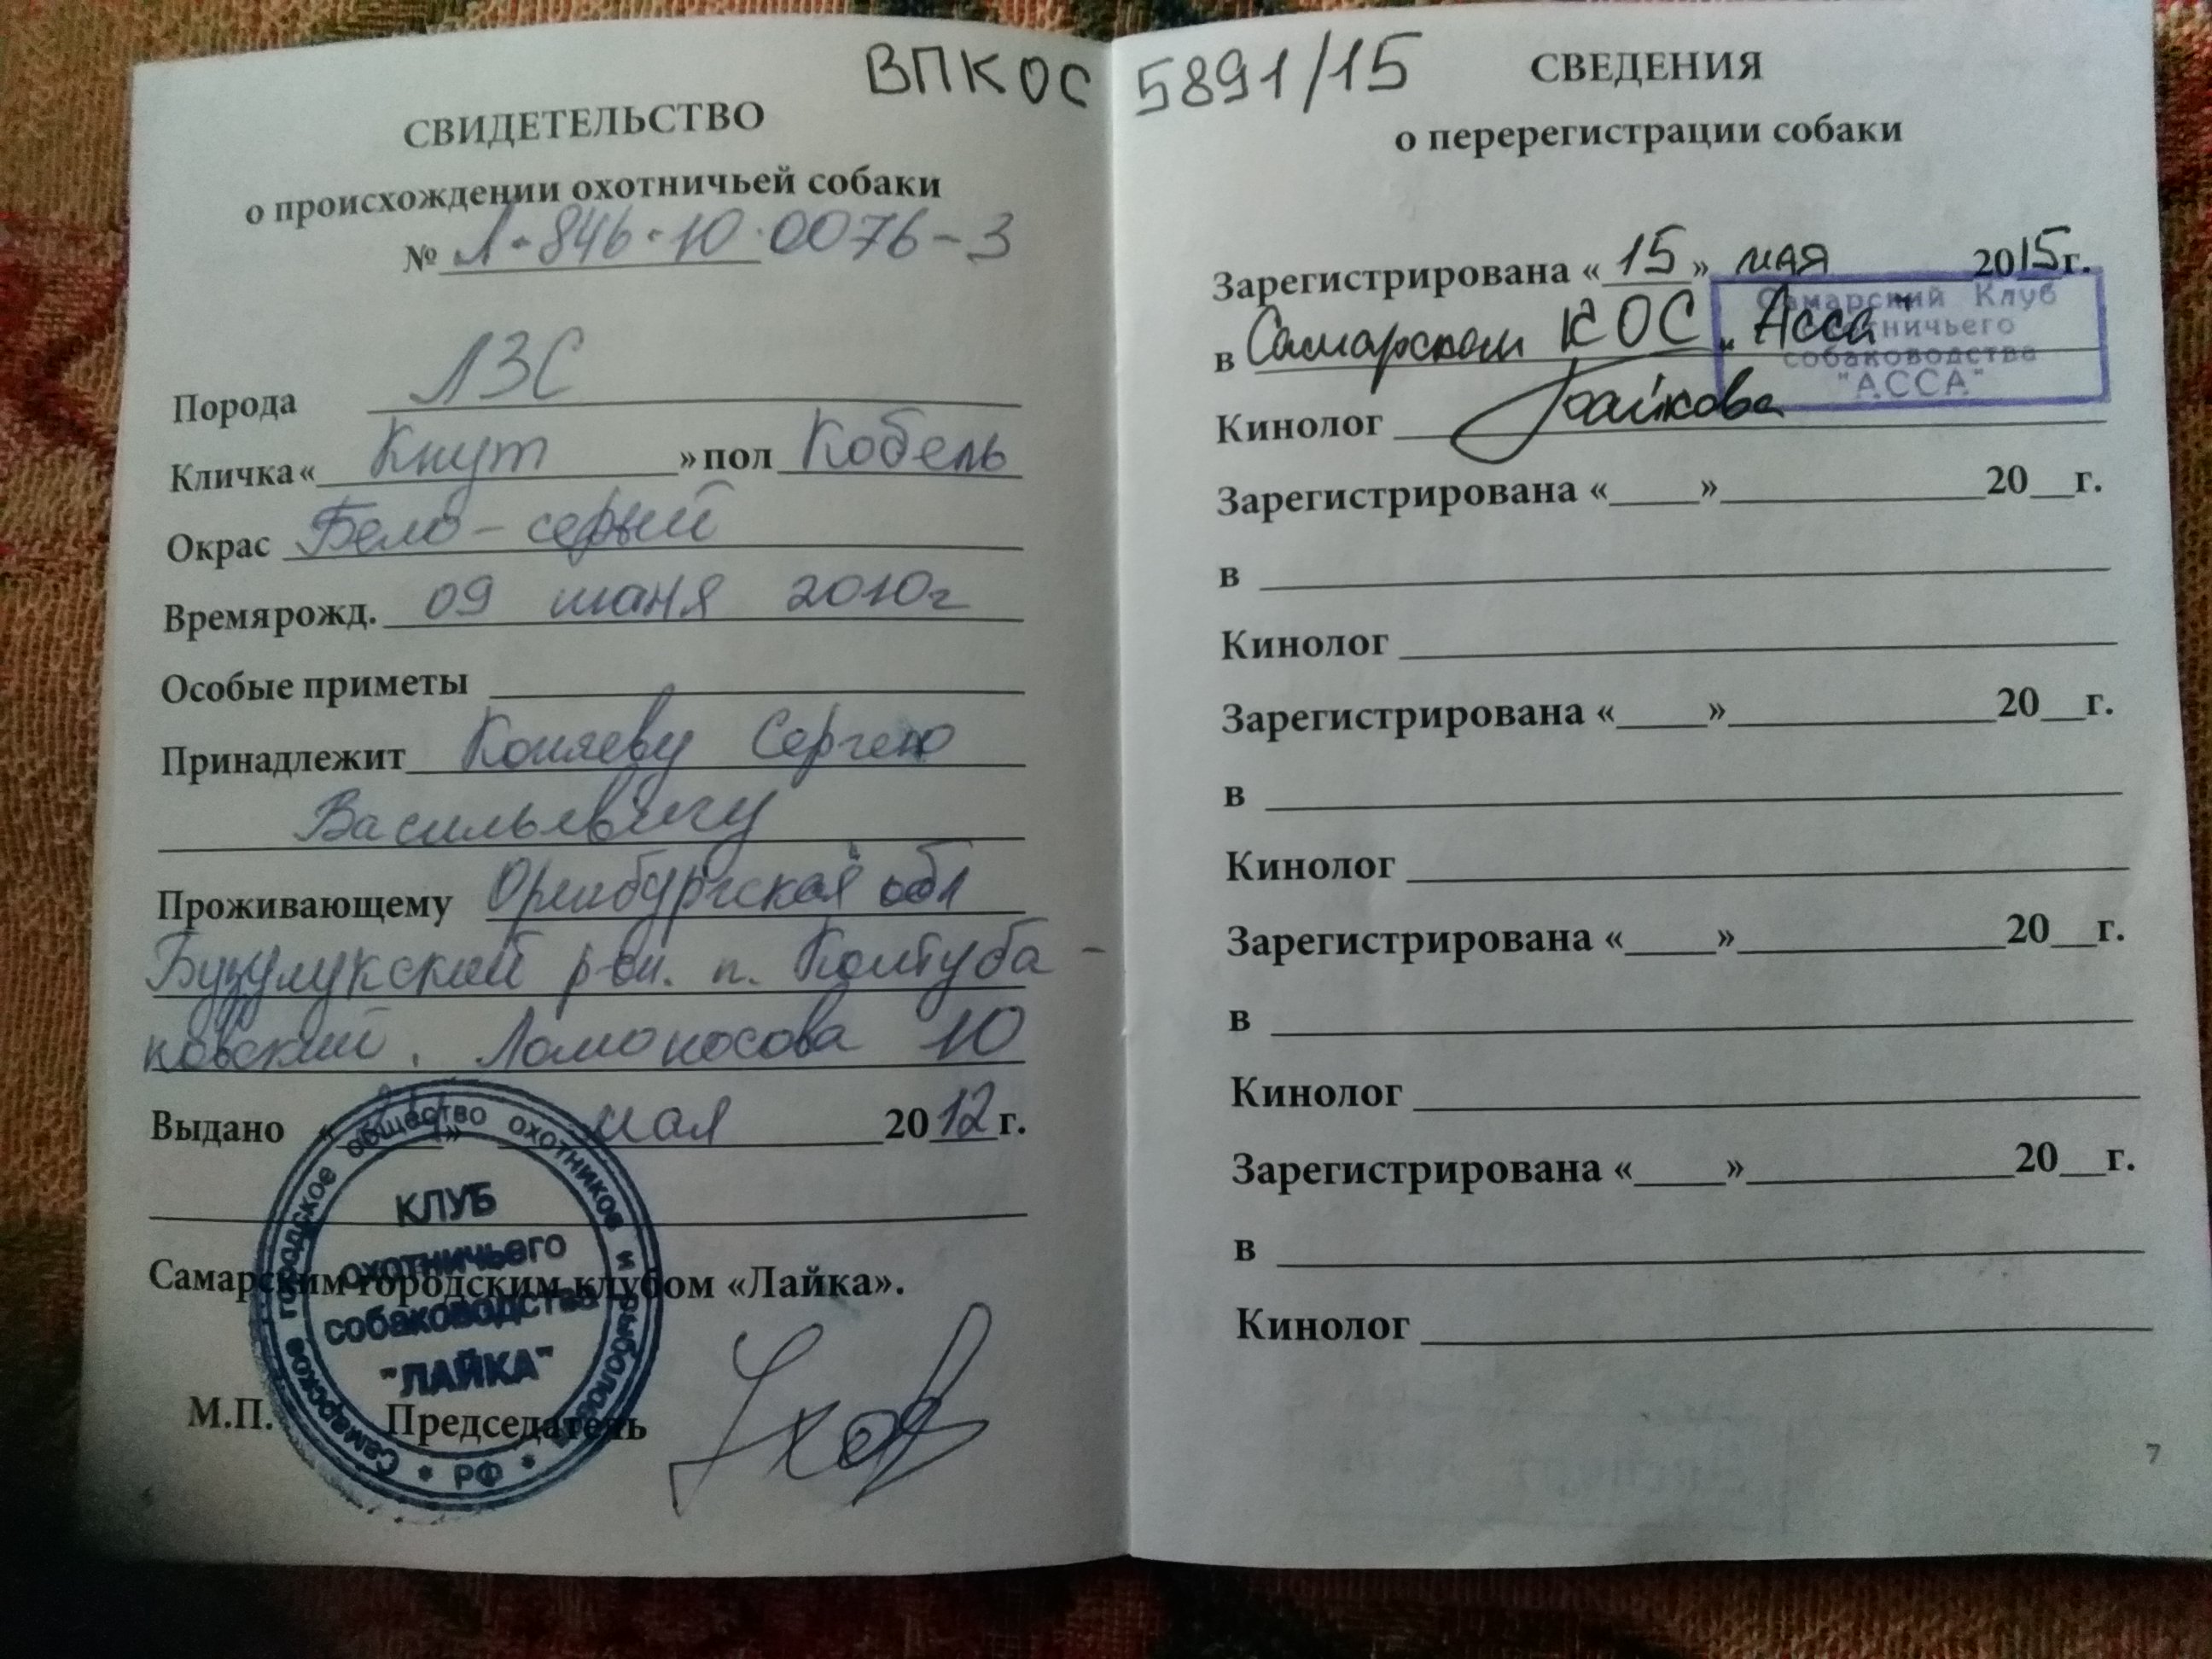 ВПКОС 5891/15
СВИДЕТЕЛЬСТВО
о происхождении охотничьей собаки
№ Л-846-10.0076-3
Порода ЛЗС
Кличка « Кнут » пол Кобель
Окрас Бело-серый
Время рожд. 09 июня 2010г
Особые приметы
Принадлежит Сергею
Васильевичу
Проживающему Оренбургская обл
Бузулукский р-он. п. Колтуба-
новский. Ломоносова 10
Выдано « » мая 2012 г.
Самарским городским клубом «Лайка».
М.П. Председатель
Самарское городское общество охотников и рыболовов * РФ *
КЛУБ
охотничьего
собаководства
"ЛАЙКА"
СВЕДЕНИЯ
о перерегистрации собаки
Зарегистрирована «15» мая 2015г.
в Самарском КОС „Асса"
Кинолог
Самарский Клуб
охотничьего
собаководства
"АССА"
Зарегистрирована «____»____________20__г.
в
Кинолог
Зарегистрирована «____»____________20__г.
в
Кинолог
Зарегистрирована «____»____________20__г.
в
Кинолог
Зарегистрирована «____»____________20__г.
в
Кинолог
7